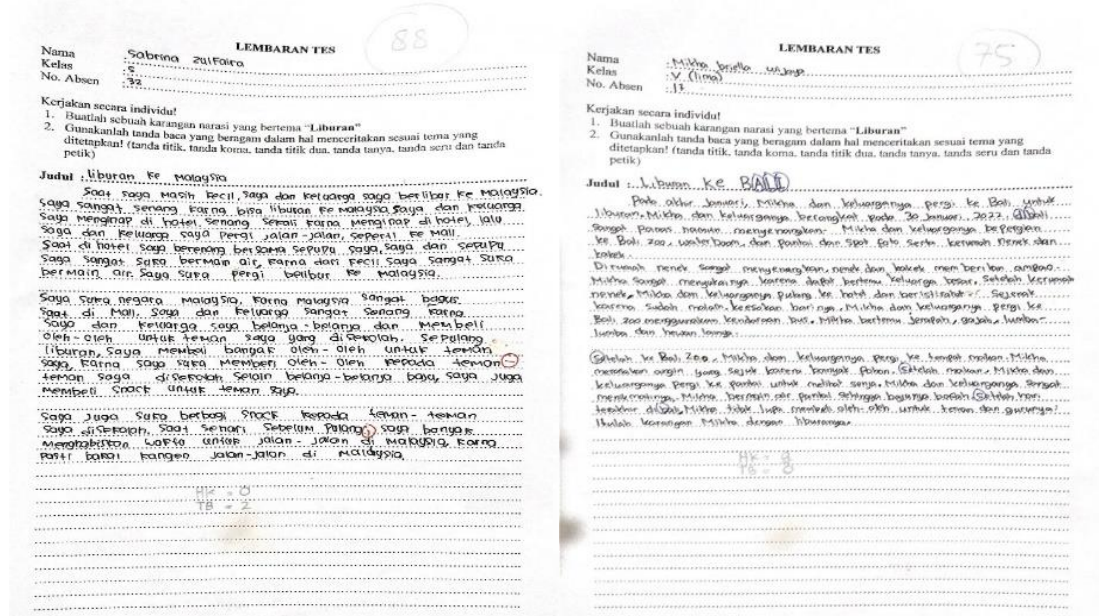 88
LEMBARAN TES
Nama : Sabrina Zulfaira
Kelas : 5
No. Absen : 32
Kerjakan secara individu!
1. Buatlah sebuah karangan narasi yang bertema "Liburan"
2. Gunakanlah tanda baca yang beragam dalam hal menceritakan sesuai tema yang
ditetapkan! (tanda titik, tanda koma, tanda titik dua, tanda tanya, tanda seru dan tanda
petik)
Judul : liburan ke Malaysia
Saat saya masih kecil, saya dan keluarga saya berlibur ke Malaysia.
saya sangat senang karna bisa liburan ke Malaysia saya dan keluarga
saya menginap di hotel, senang sekali karna menginap di hotel, lalu
saya dan keluarga saya pergi jalan-jalan, seperti ke Mall.
Saat di hotel saya berenang bersama sepupu saya, saya dan sepupu
saya sangat suka bermain air, karna dari kecil saya sangat suka
bermain air. Saya suka pergi belibur ke Malaysia.
Saya suka negara Malaysia, karna Malaysia sangat bagus.
Saat di Mall, saya dan keluarga sangat senang karna
saya dan keluarga saya belanja-belanja dan Membeli
oleh-oleh untuk teman saya yang disekolah. Sepulang
liburan, saya membeli banyak oleh-oleh untuk teman
saya, karna saya suka memberi oleh-oleh kepada teman
teman saya disekolah selain belanja-belanja baju, saya juga
membeli snack untuk teman saya.
Saya juga suka berbagi snack kepada teman-teman
saya disekolah. Saat sehari sebelum pulang, saya banyak
Menghabiskan waktu untuk jalan-jalan di Malaysia, karna
pasti bakal kangen jalan-jalan di Malaysia.
HK = 0
TB = 2
75
LEMBARAN TES
Nama : Mikha briella wijaya
Kelas : V (lima)
No. Absen : 17
Kerjakan secara individu!
1. Buatlah sebuah karangan narasi yang bertema "Liburan"
2. Gunakanlah tanda baca yang beragam dalam hal menceritakan sesuai tema yang
ditetapkan! (tanda titik, tanda koma, tanda titik dua, tanda tanya, tanda seru dan tanda
petik)
Judul : Liburan ke BALI
Pada akhir Januari, Mikha dan keluarganya pergi ke Bali untuk
liburan. Mikha dan keluarganya berangkat pada 30 Januari, 2022. diBali
sangat panas namun menyenangkan. Mikha dan keluarganya bepergian
ke Bali zoo, waterboom, dan pantai dan spot foto serta kerumah nenek dan
kakek.
Dirumah nenek sangat menyenangkan, nenek dan kakek memberikan ampao.
Mikha sangat menyukainya karena dapat bertemu keluarga besar. Setelah kerumah
nenek, Mikha dan keluarganya pulang ke hotel dan beristirahat sejenak
karena sudah malam. keesokan harinya, Mikha dan keluarganya pergi ke
Bali zoo menggunakan kendaraan bus. Mikha bertemu jerapah, gajah, lumba-
lumba dan hewan lainnya.
Setelah ke Bali zoo, Mikha dan keluarganya pergi ke tempat makan. Mikha
merasakan angin yang sejuk karena banyak pohon. Setelah makan, Mikha dan
keluarganya pergi ke pantai untuk melihat senja. Mikha dan keluarganya sangat
menikmatinya, Mikha bermain air pantai sehingga bajunya basah. Setelah hari
terakhir diBali, Mikha tidak lupa membeli oleh-oleh untuk teman dan gurunya!
Itulah karangan Mikha dengan liburannya.
HK = 9
TB = 0